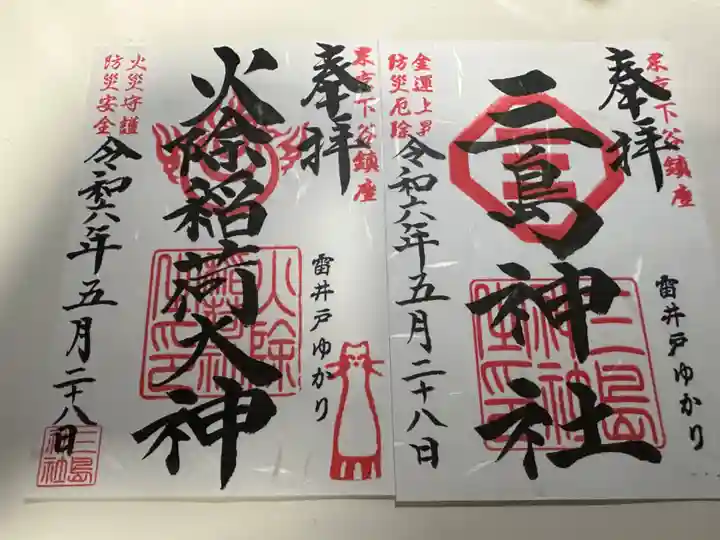 東京下谷鎮座
奉拝
三島神社
三島神社
雷井戸ゆかり
金運上昇
防災厄除
令和六年五月二十八日
東京下谷鎮座
奉拝
火除稲荷大神
火除
雷井戸ゆかり
火災守護
防災安全
令和六年五月二十八日
三島
神社